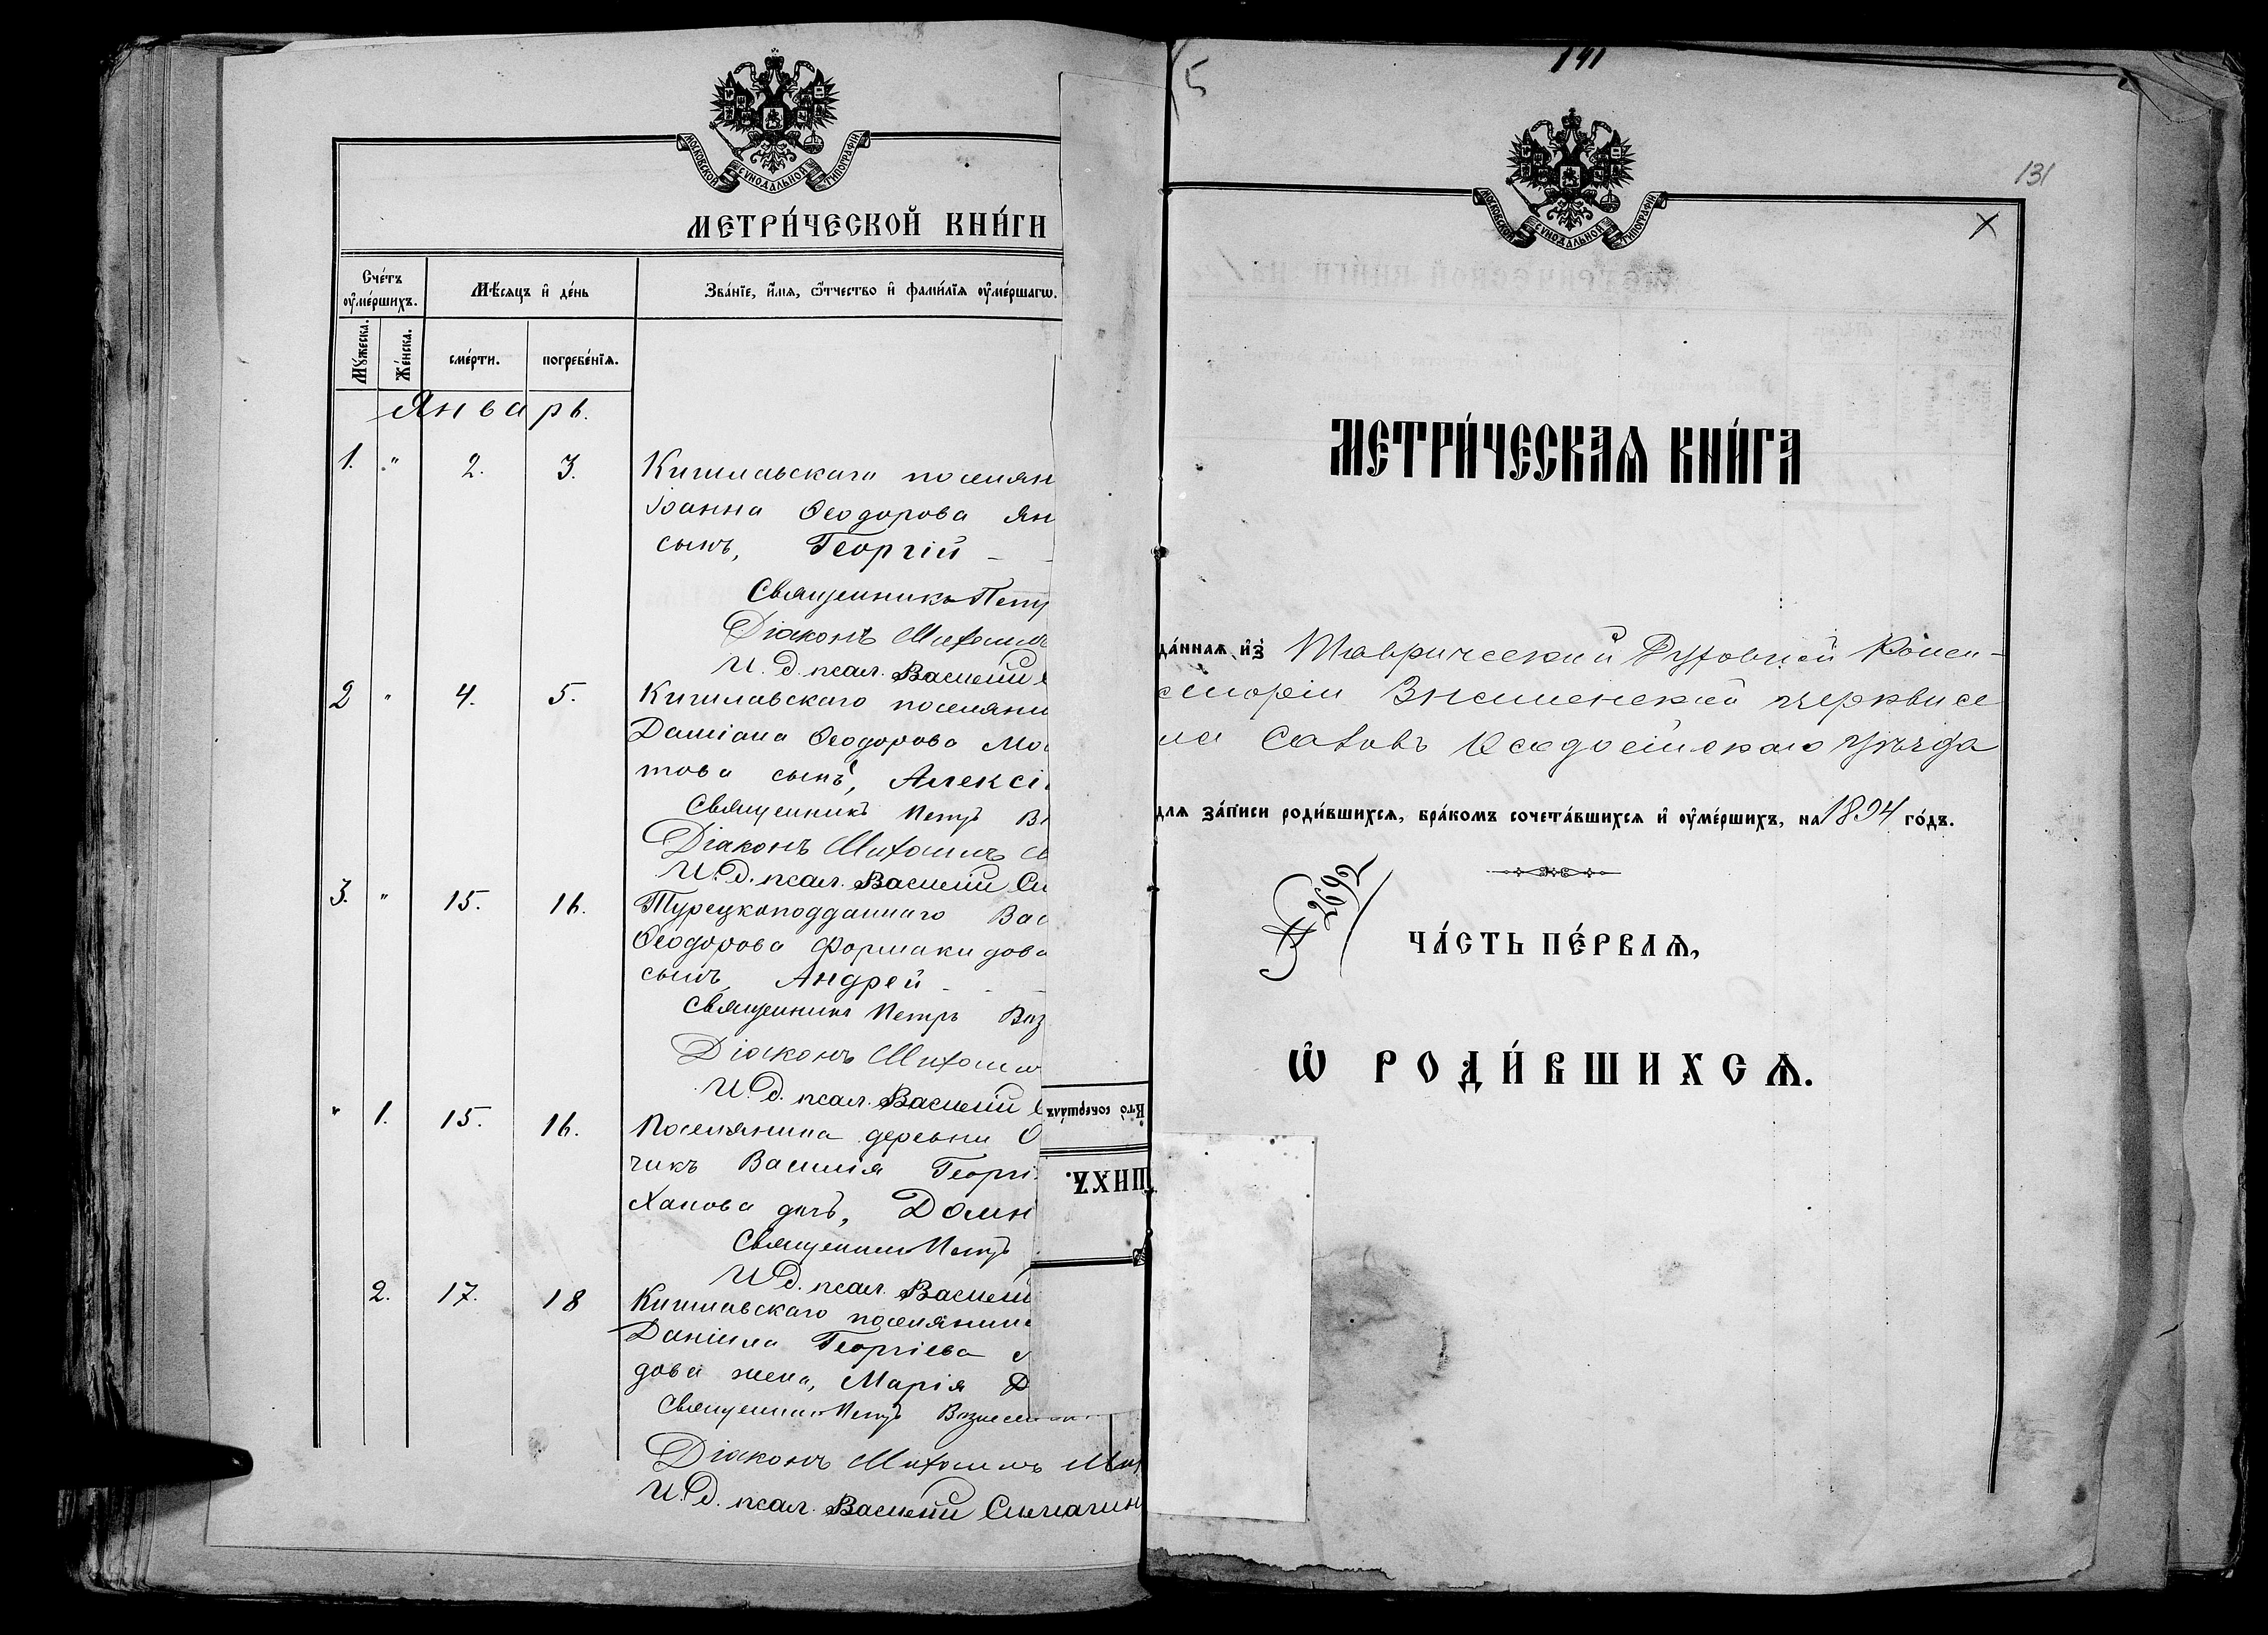 МОСКОВСКОЙ СѴНОДАЛЬНОЙ ТИПОГРАФІИ
МЕТРИ́ЧЕСКОЙ КНИ́ГИ
Сче́тъ ᲂу҆ме́ршихъ.
Мѣ́сяцъ и҆ де́нь
Зва́нїе, и҆́мѧ, ѻ҆́тчество и҆ фами́лїѧ ᲂу҆ме́ршагѡ.
Мꙋ́жеска.
Же́нска.
сме́рти.
погребе́нїѧ.
Январь.
1. " 2. 3. Кишлавскаго поселян
Іоанна Ѳеодорова Ян
сынъ, Георгій
Священникъ Петр
Діаконъ Михаилъ
И. д. псал. Василій
2 " 4. 5. Кишлавскаго поселяни
Даміана Ѳеодорова Мо
това сынъ, Алексі
Священникъ Петръ В
Діаконъ Михаилъ М
И. д. псал. Василій Си
3. " 15. 16. Турецкоподданнаго Вас
Ѳеодорова Формакидова
сынъ, Андрей
Священникъ Петръ Воз
Діаконъ Михаил
И. д. псал. Василій С
" 1. 15. 16. Поселянина деревни
чикъ Василія Георгі
Ханова дчь, Домн
Священникъ Петръ
И. д. псал. Василій
2. 17. 18 Кишлавскаго поселянина
Даніила Георгіева
дова жена, Марія
Священникъ Петръ Вознесен
Діаконъ Михаилъ Ми
И. д. псал. Василій Синагин
Кто̀ соверша́лъ
ШИХЪ.
5
141
131
X
МОСКОВСКОЙ СѴНОДАЛЬНОЙ ТИПОГРАФІИ
МЕТРИ́ЧЕСКАѦ КНИ́ГА
да́ннаѧ и҆з̾ Таврической Духовной Конси-
сторіи Знаменской церкви се
ла Саховъ Ѳеодосійскаго уѣзда
для за́писи роди́вшихсѧ, бра́комъ сочета́вшихсѧ и҆ ᲂу҆ме́ршихъ, на 1894 го́дъ.
№ 2692
ЧА́СТЬ ПЕ́РВАѦ,
Ѽ РОДИ́ВШИХСѦ.